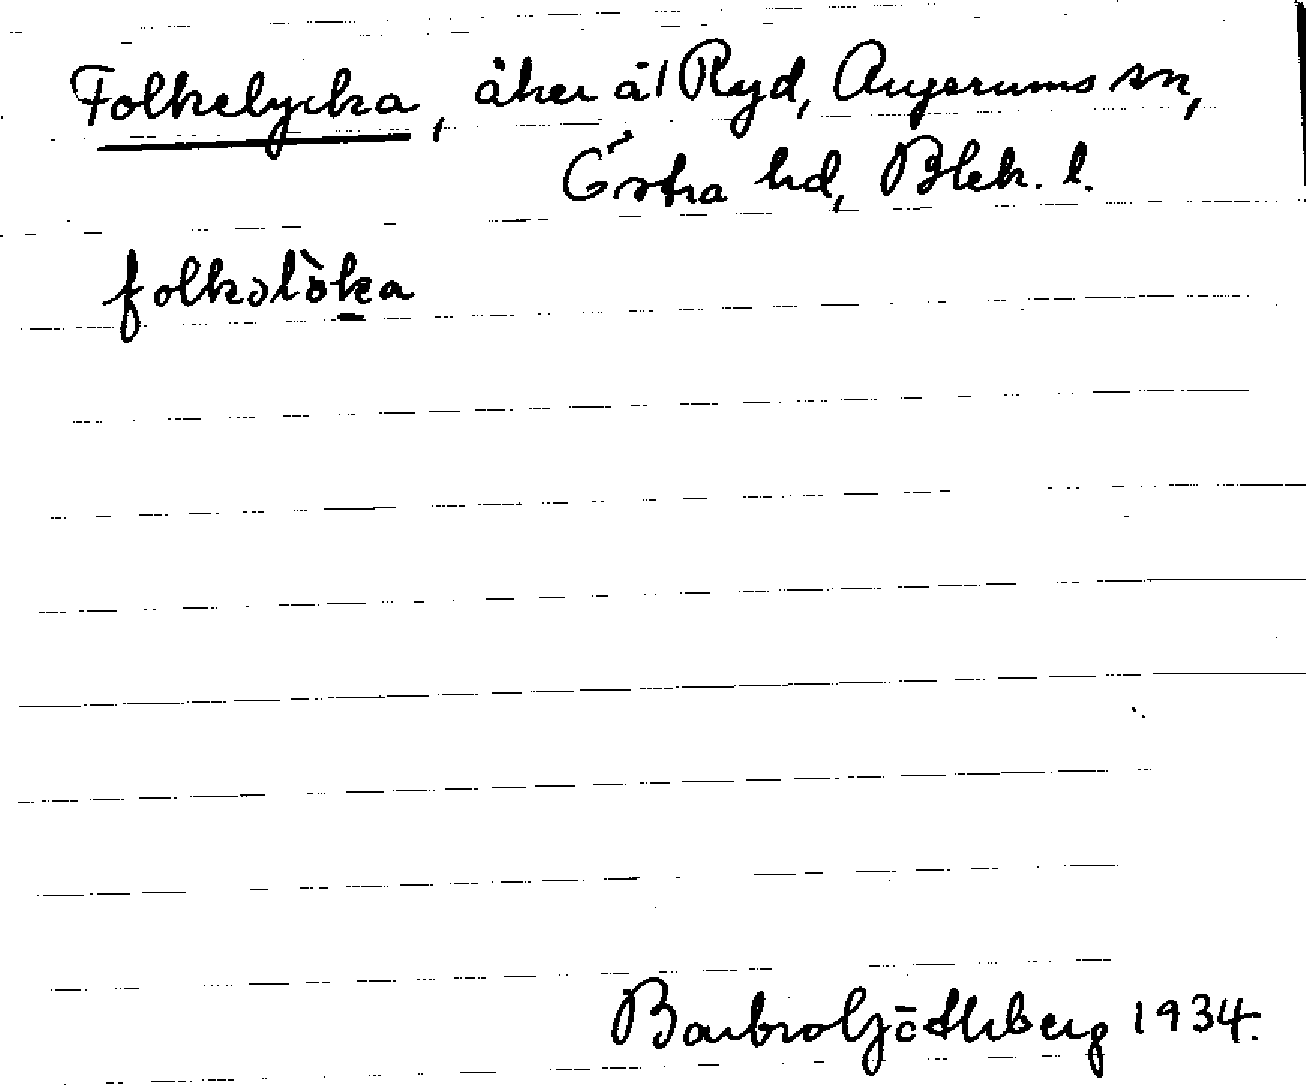 Folkelycka, åker ål Ryd, Augerums sn,
Östra hd, Blek. l.
folkəlö̀ka
Barbro Göthberg 1934.